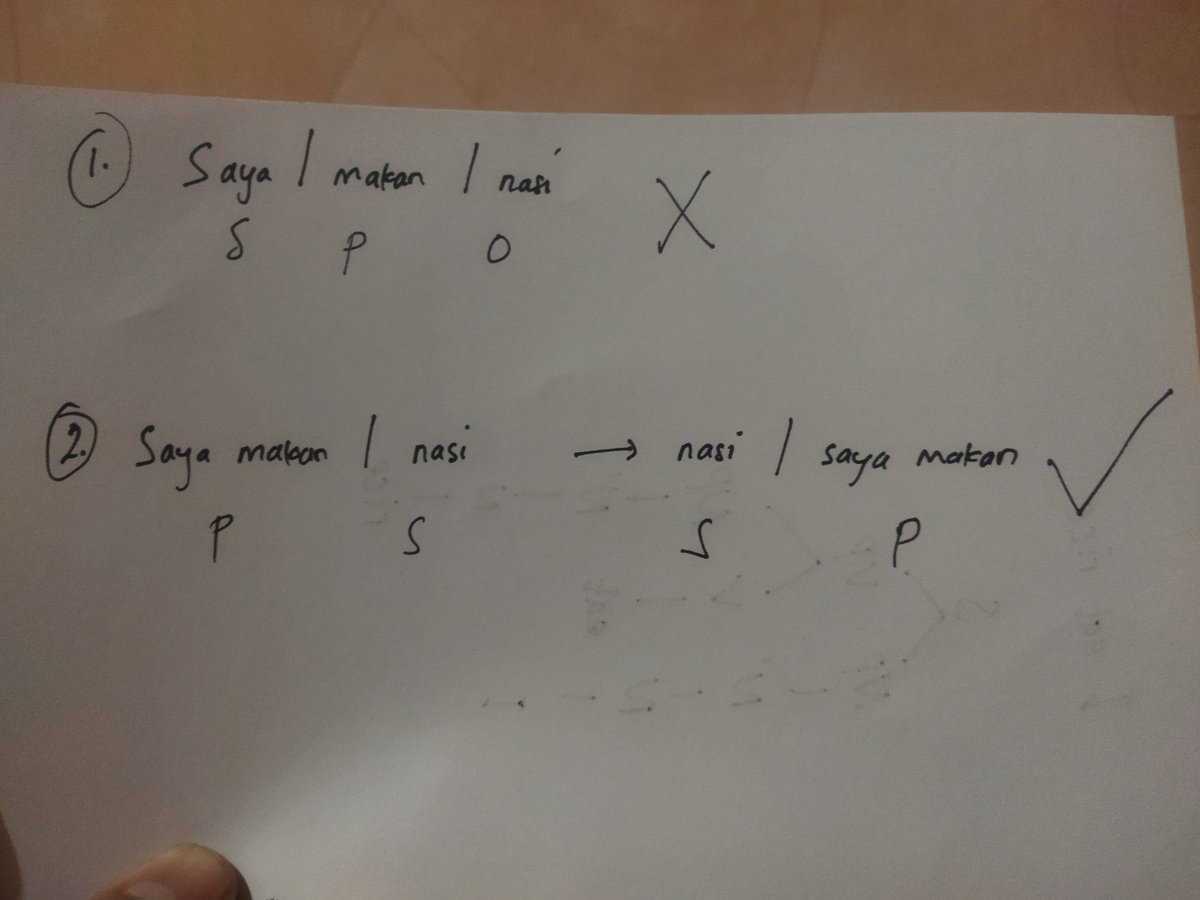 1. Saya / makan / nasi X
S P O
2. Saya makan / nasi → nasi / saya makan ✓
P S S P